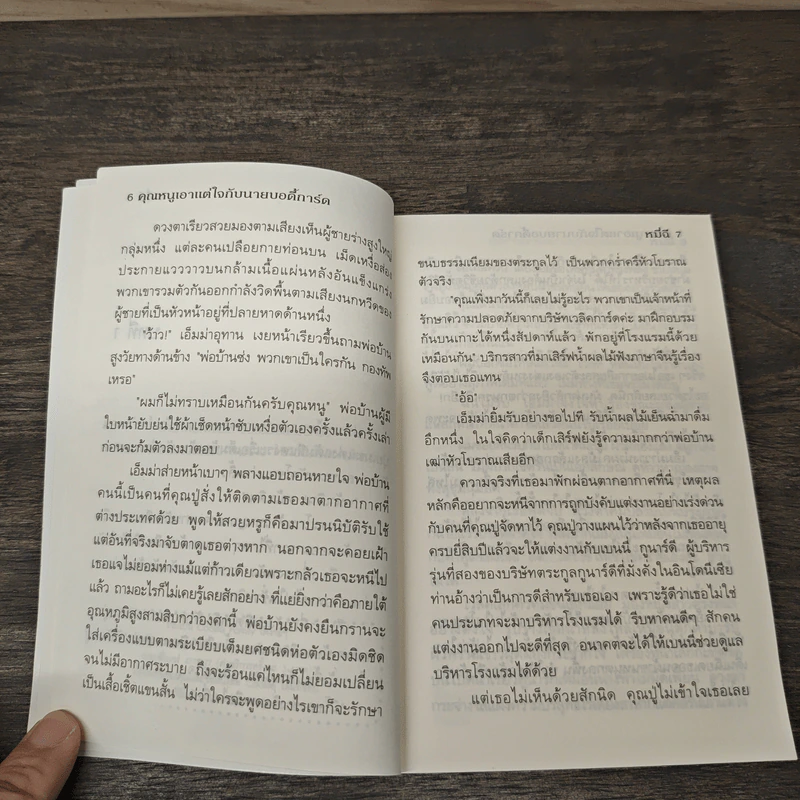 6 คุณหนูเอาแต่ใจกับนายบอดี้การ์ด
ดวงตาเรียวสวยมองตามเสียงเห็นผู้ชายร่างสูงใหญ่
กลุ่มหนึ่ง แต่ละคนเปลือยกายท่อนบน เม็ดเหงื่อส่อง
ประกายแวววาวบนกล้ามเนื้อแผ่นหลังอันแข็งแกร่ง
พวกเขารวมตัวกันออกกำลังวิดพื้นตามเสียงนกหวีดของ
ผู้ชายที่เป็นหัวหน้าอยู่ที่ปลายหาดด้านหนึ่ง
"ว้าว!" เอ็มม่าอุทาน เงยหน้าเรียวขึ้นถามพ่อบ้าน
สูงวัยทางด้านข้าง "พ่อบ้านซ่ง พวกเขาเป็นใครกัน กองทัพ
เหรอ"
"ผมก็ไม่ทราบเหมือนกันครับคุณหนู" พ่อบ้านผู้มี
ใบหน้ายับย่นใช้ผ้าเช็ดหน้าซับเหงื่อตัวเองครั้งแล้วครั้งเล่า
ก่อนจะก้มตัวลงมาตอบ
เอ็มม่าส่ายหน้าเบาๆ พลางแอบถอนหายใจ พ่อบ้าน
คนนี้เป็นคนที่คุณปู่สั่งให้ติดตามเธอมาตากอากาศที่
ต่างประเทศด้วย พูดให้สวยหรูก็คือมาปรนนิบัติรับใช้
แต่อันที่จริงมาจับตาดูเธอต่างหาก นอกจากจะคอยเฝ้า
เธอแจไม่ยอมห่างแม้แต่ก้าวเดียวเพราะกลัวเธอจะหนีไป
แล้ว ถามอะไรก็ไม่เคยรู้เลยสักอย่าง ที่แย่ยิ่งกว่าคือภายใต้
อุณหภูมิสูงสามสิบกว่าองศานี้ พ่อบ้านยังคงยืนกรานจะ
ใส่เครื่องแบบตามระเบียบเต็มยศชนิดห่อตัวเองมิดชิด
จนไม่มีอากาศระบาย ถึงจะร้อนแค่ไหนก็ไม่ยอมเปลี่ยน
เป็นเสื้อเชิ้ตแขนสั้น ไม่ว่าใครจะพูดอย่างไรเขาก็จะรักษา
หมี่ฉี 7
ขนบธรรมเนียมของตระกูลไว้ เป็นพวกคร่ำครึหัวโบราณ
ตัวจริง
"คุณเพิ่งมาวันนี้ก็เลยไม่รู้อะไร พวกเขาเป็นเจ้าหน้าที่
รักษาความปลอดภัยจากบริษัทเวลิคการ์ดค่ะ มาฝึกอบรม
กันบนเกาะได้หนึ่งสัปดาห์แล้ว พักอยู่ที่โรงแรมนี้ด้วย
เหมือนกัน" บริกรสาวที่มาเสิร์ฟน้ำผลไม้ฟังภาษาจีนรู้เรื่อง
จึงตอบเธอแทน
"อ้อ"
เอ็มม่ายิ้มรับอย่างขอไปที รับน้ำผลไม้เย็นฉ่ำมาดื่ม
อึกหนึ่ง ในใจคิดว่าเด็กเสิร์ฟยังรู้ความมากกว่าพ่อบ้าน
เฒ่าหัวโบราณเสียอีก
ความจริงที่เธอมาพักผ่อนตากอากาศที่นี่ เหตุผล
หลักคืออยากจะหนีจากการถูกบังคับแต่งงานอย่างเร่งด่วน
กับคนที่คุณปู่จัดหาไว้ คุณปู่วางแผนไว้ว่าหลังจากเธออายุ
ครบยี่สิบปีแล้วจะให้แต่งงานกับเบนนี่ กูนาร์ดี ผู้บริหาร
รุ่นที่สองของบริษัทตระกูลกูนาร์ดีที่มั่งคั่งในอินโดนีเซีย
ท่านอ้างว่าเป็นการดีสำหรับเธอเอง เพราะรู้ดีว่าเธอไม่ใช่
คนประเภทจะมาบริหารโรงแรมได้ รีบหาคนดีๆ สักคน
แต่งงานออกไปจะดีที่สุด อนาคตจะได้ให้เบนนี่ช่วยดูแล
บริหารโรงแรมได้ด้วย
แต่เธอไม่เห็นด้วยสักนิด คุณปู่ไม่เข้าใจเธอเลย